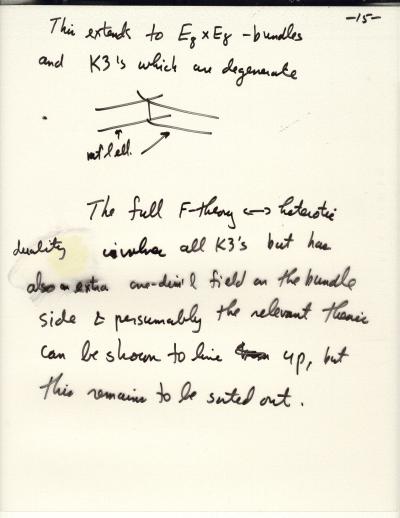 -15-
This extends to E₈×E₈ -bundles
and K3's which are degenerate
rat'l ell.
The full F-theory ↔ heterotic
duality involve all K3's but has
also an extra one-dim'l field on the bundle
side & persumably the relevant theories
can be shown to line up, but
this remains to be sorted out.